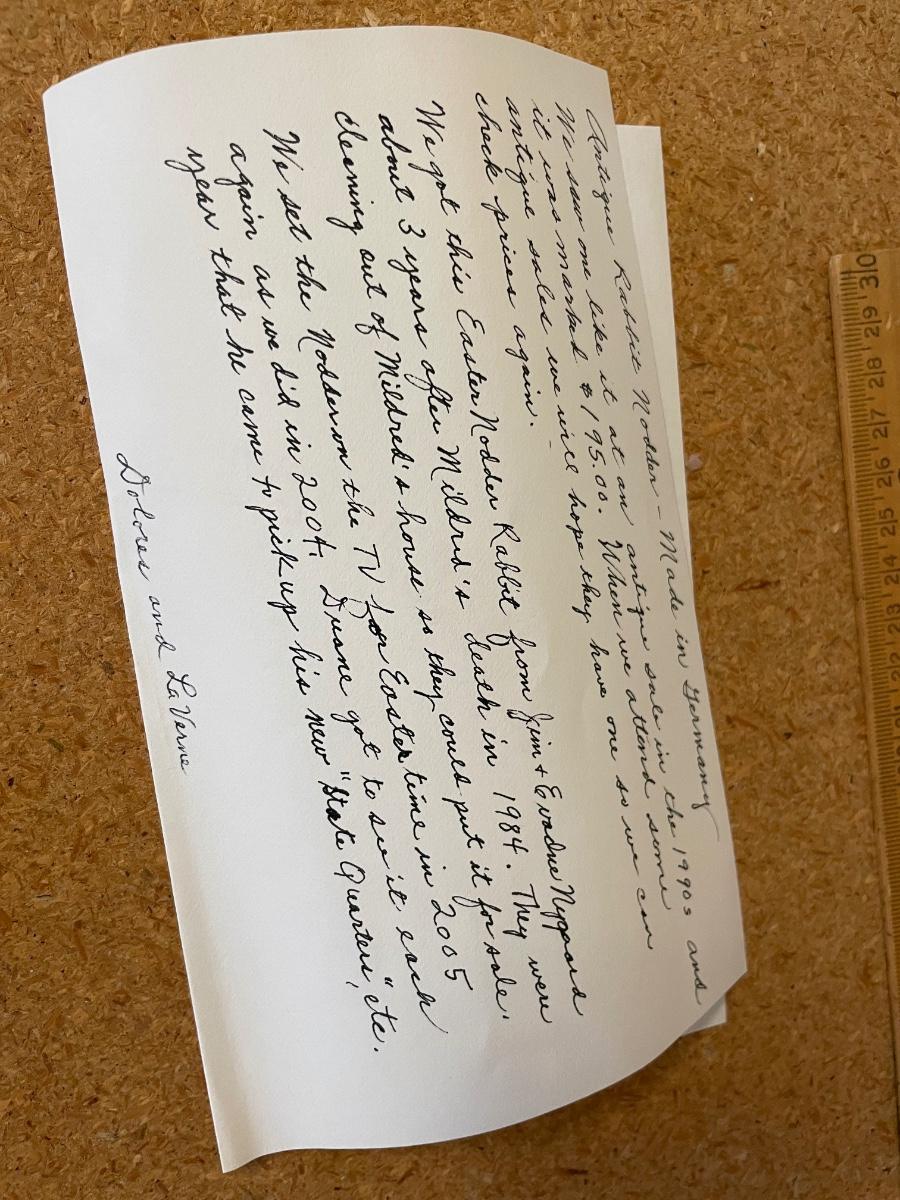 Antique Rabbit Nodder - Made in Germany
We saw one like it at an antique sale in the 1990s and
it was marked $195.00. When we attend some
antique sales we will hope they have one so we can
check prices again.
We got this Easter Nodder Rabbit from Jim + Evadne Nygaard
about 3 years after Mildred's death in 1984. They were
cleaning out of Mildred's house so they could put it for sale.
We set the Nodder on the TV for Easter time in 2005
again as we did in 2004. Duane got to see it each
year that he came to pick up his new "State Quarters," etc.
Dolores and LaVerne
30
29
28
27
26
25
24
23
22